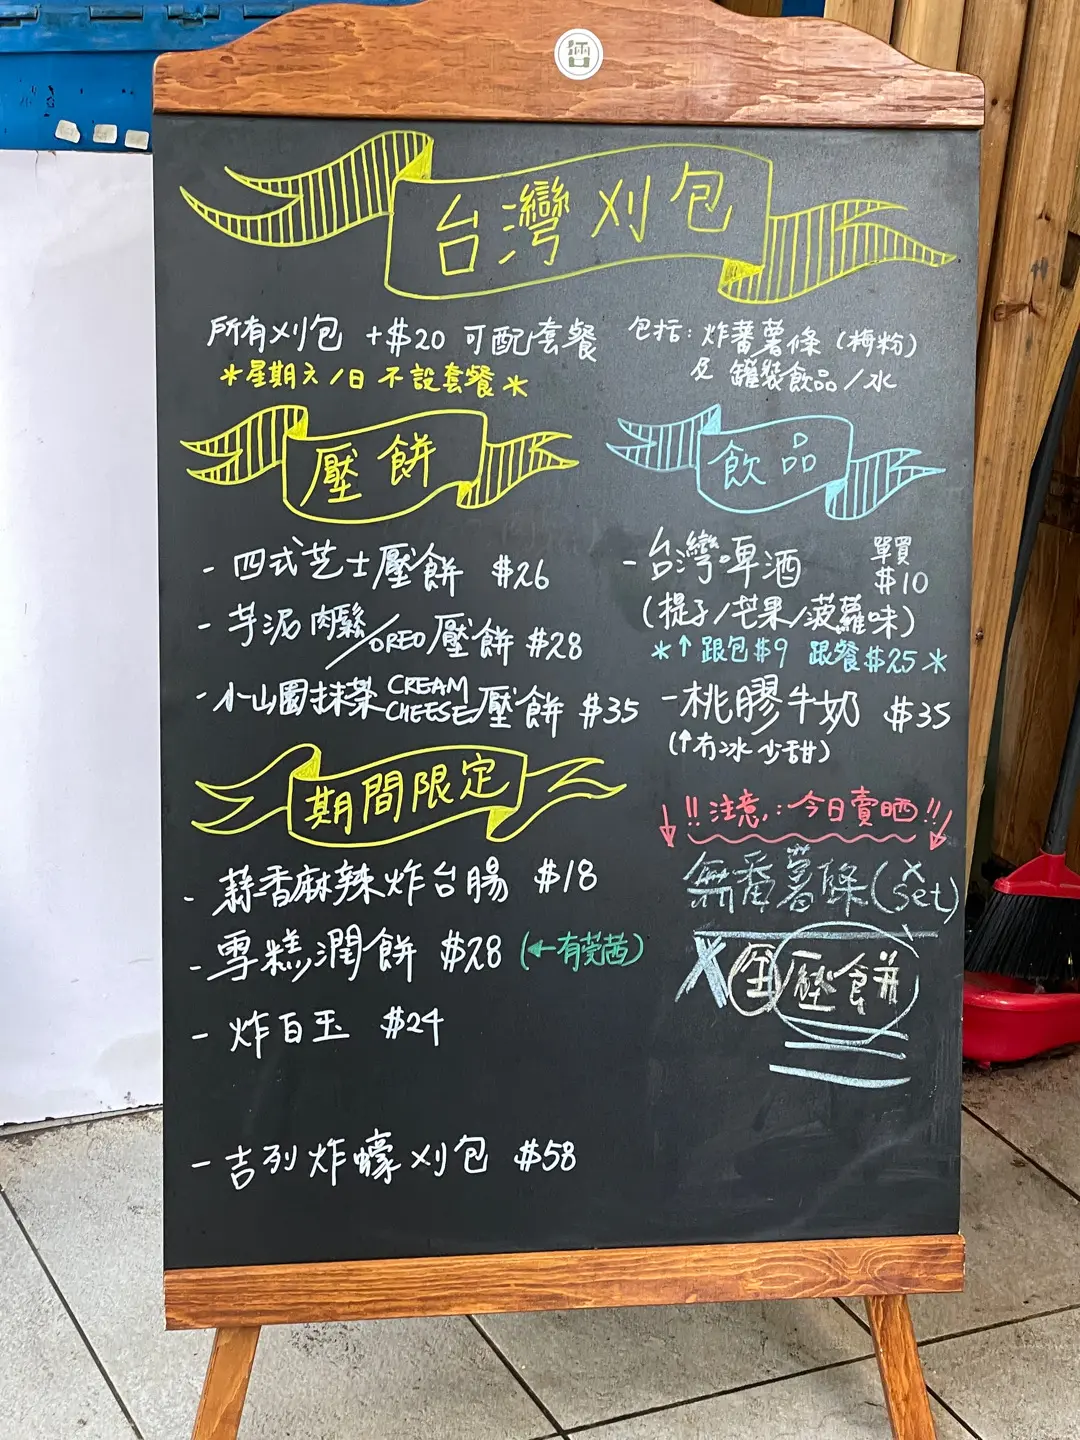 台灣刈包
所有刈包 +$20 可配套餐
*星期六/日 不設套餐*
包括: 炸蕃薯條 (梅粉)
及 罐裝飲品/水
壓餅
- 四式芝士壓餅 $26
- 芋泥肉鬆/OREO 壓餅 $28
- 小山園抹茶 CREAM CHEESE 壓餅 $35
飲品
- 台灣啤酒 單買 $10
(提子/芒果/菠蘿味)
*↑ 跟包$9 跟餐$25*
- 桃膠牛奶 $35
(↑冇冰 少甜)
期間限定
- 蒜香麻辣炸台腸 $18
- 雪糕潤餅 $28 (←有芫茜)
- 炸百玉 $24
- 吉列炸蠔刈包 $58
!!注意: 今日賣晒!!
無番薯條(X Set)
X 全壓餅